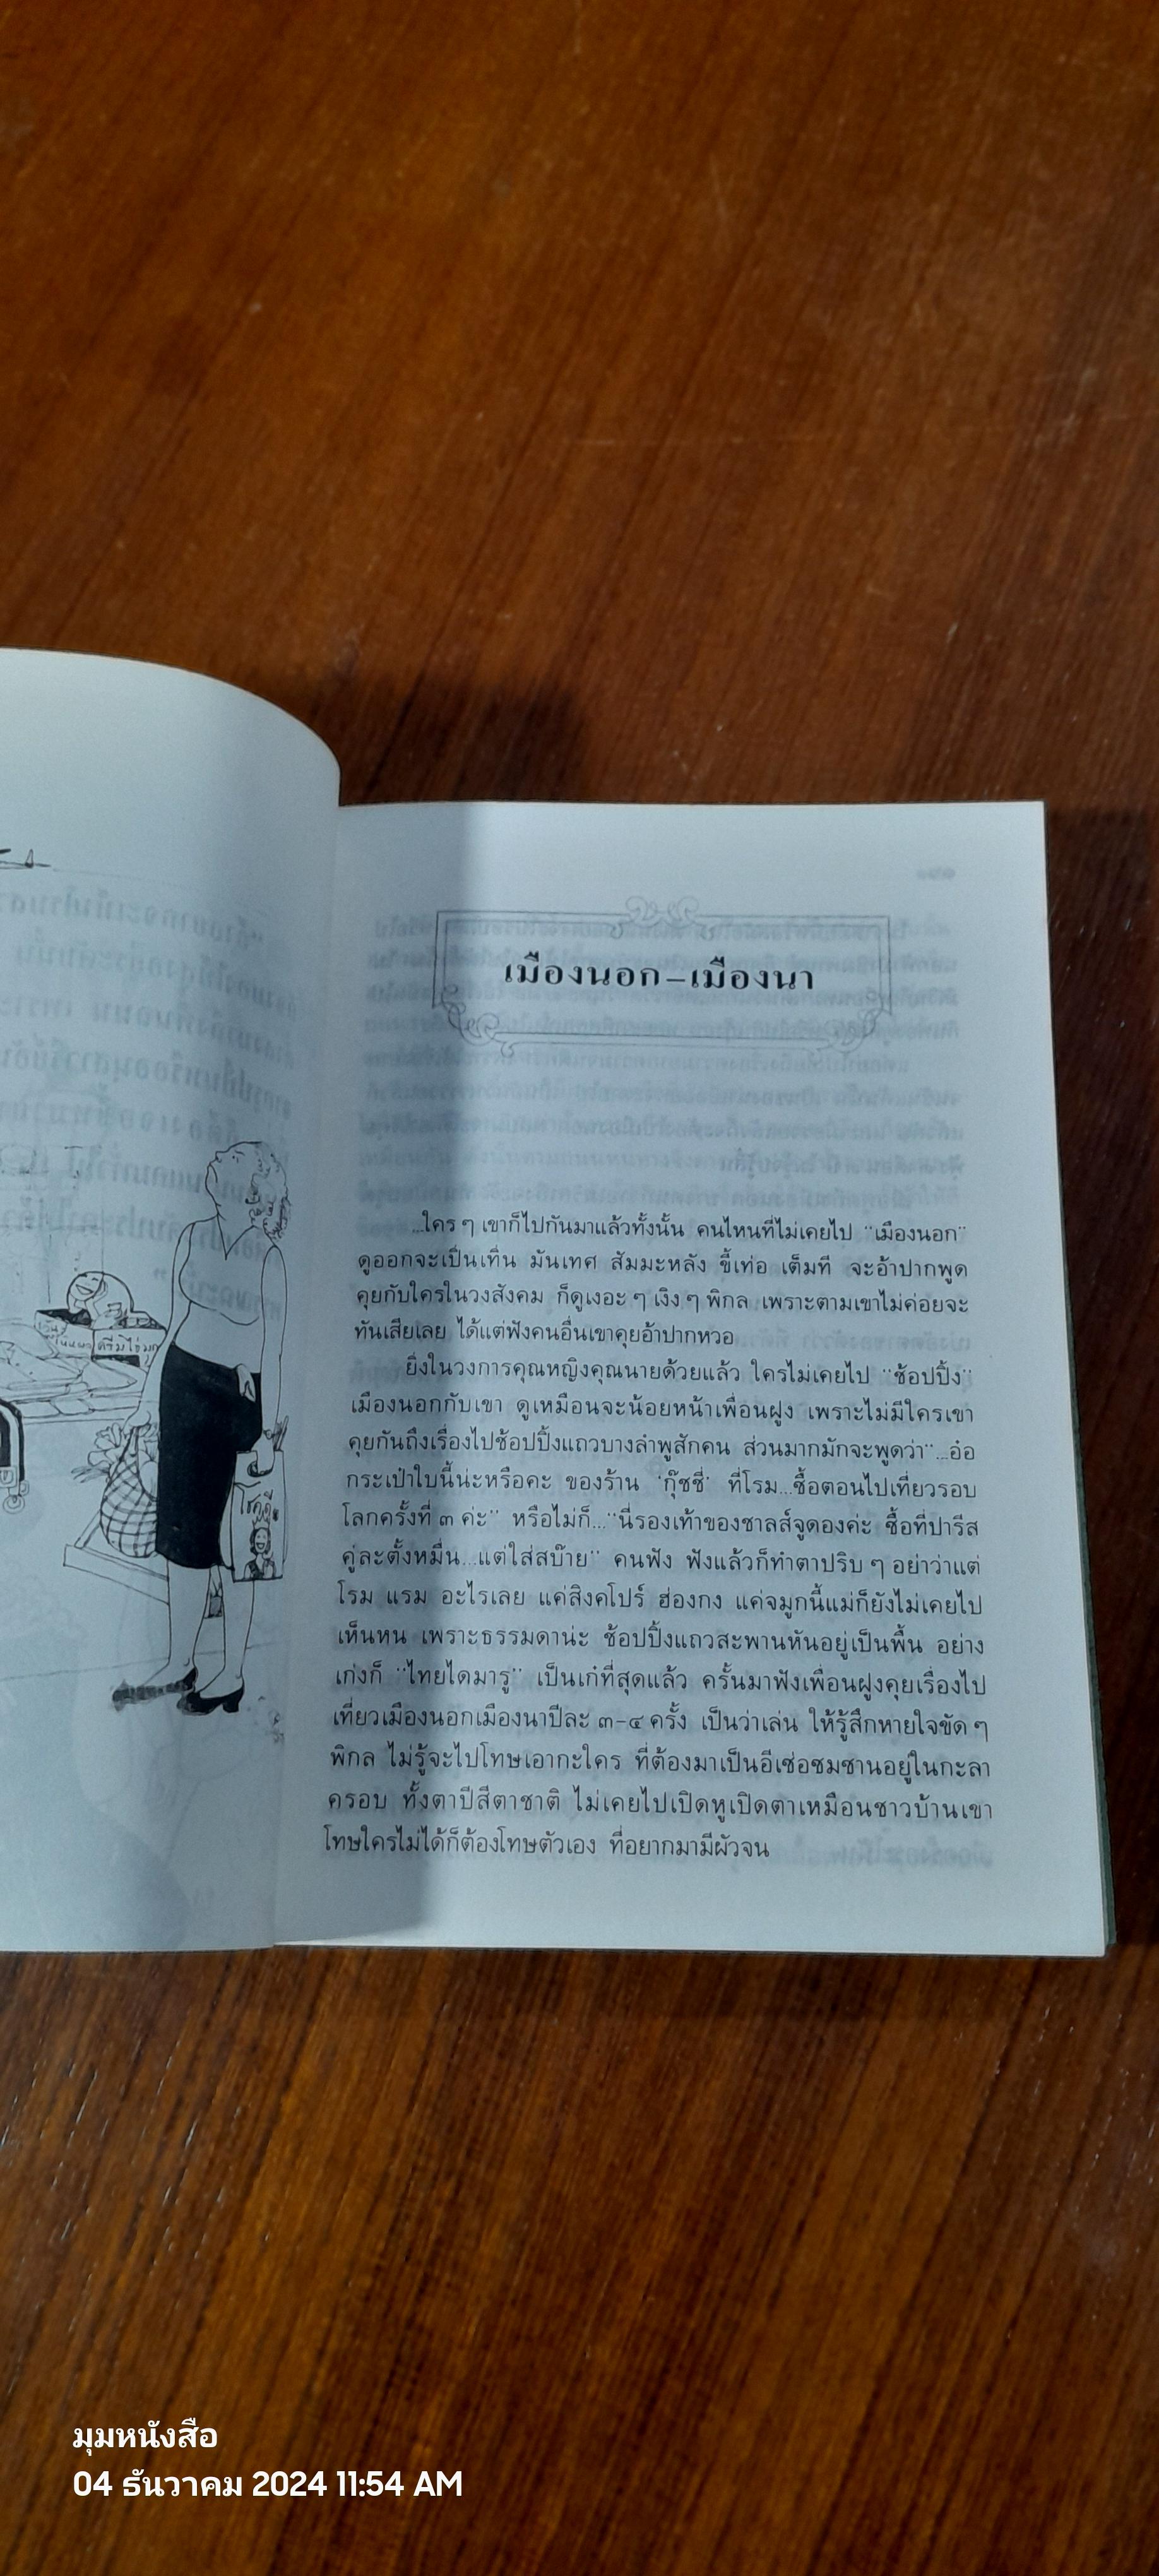 เมืองนอก–เมืองนา
...ใคร ๆ เขาก็ไปกันมาแล้วทั้งนั้น คนไหนที่ไม่เคยไป "เมืองนอก"
ดูออกจะเป็นเทิ่น มันเทศ สัมมะหลัง ขี้เท่อ เต็มที จะอ้าปากพูด
คุยกับใครในวงสังคม ก็ดูเงอะ ๆ เงิง ๆ พิกล เพราะตามเขาไม่ค่อยจะ
ทันเสียเลย ได้แต่ฟังคนอื่นเขาคุยอ้าปากหวอ
ยิ่งในวงการคุณหญิงคุณนายด้วยแล้ว ใครไม่เคยไป "ช้อปปิ้ง"
เมืองนอกกับเขา ดูเหมือนจะน้อยหน้าเพื่อนฝูง เพราะไม่มีใครเขา
คุยกันถึงเรื่องไปช้อปปิ้งแถวบางลำพูสักคน ส่วนมากมักจะพูดว่า "...อ๋อ
กระเป๋าใบนี้น่ะหรือคะ ของร้าน 'กุ๊ชชี่' ที่โรม...ซื้อตอนไปเที่ยวรอบ
โลกครั้งที่ ๓ ค่ะ" หรือไม่ก็..."นี่รองเท้าของชาลส์จูดองค่ะ ซื้อที่ปารีส
คู่ละตั้งหมื่น...แต่ใส่สบ๊าย" คนฟัง ฟังแล้วก็ทำตาปริบ ๆ อย่าว่าแต่
โรม แรม อะไรเลย แค่สิงคโปร์ ฮ่องกง แค่จมูกนี้แม่ก็ยังไม่เคยไป
เห็นหน เพราะธรรมดาน่ะ ช้อปปิ้งแถวสะพานหันอยู่เป็นพื้น อย่าง
เก่งก็ "ไทยไดมารู" เป็นเก๋ที่สุดแล้ว ครั้นมาฟังเพื่อนฝูงคุยเรื่องไป
เที่ยวเมืองนอกเมืองนาปีละ ๓–๔ ครั้ง เป็นว่าเล่น ให้รู้สึกหายใจขัด ๆ
พิกล ไม่รู้จะไปโทษเอากะใคร ที่ต้องมาเป็นอีเซ่อซมซานอยู่ในกะลา
ครอบ ทั้งตาปีสีตาชาติ ไม่เคยไปเปิดหูเปิดตาเหมือนชาวบ้านเขา
โทษใครไม่ได้ก็ต้องโทษตัวเอง ที่อยากมามีผัวจน
ครีมไข่มุก
โชคดี
มุมหนังสือ
04 ธันวาคม 2024 11:54 AM